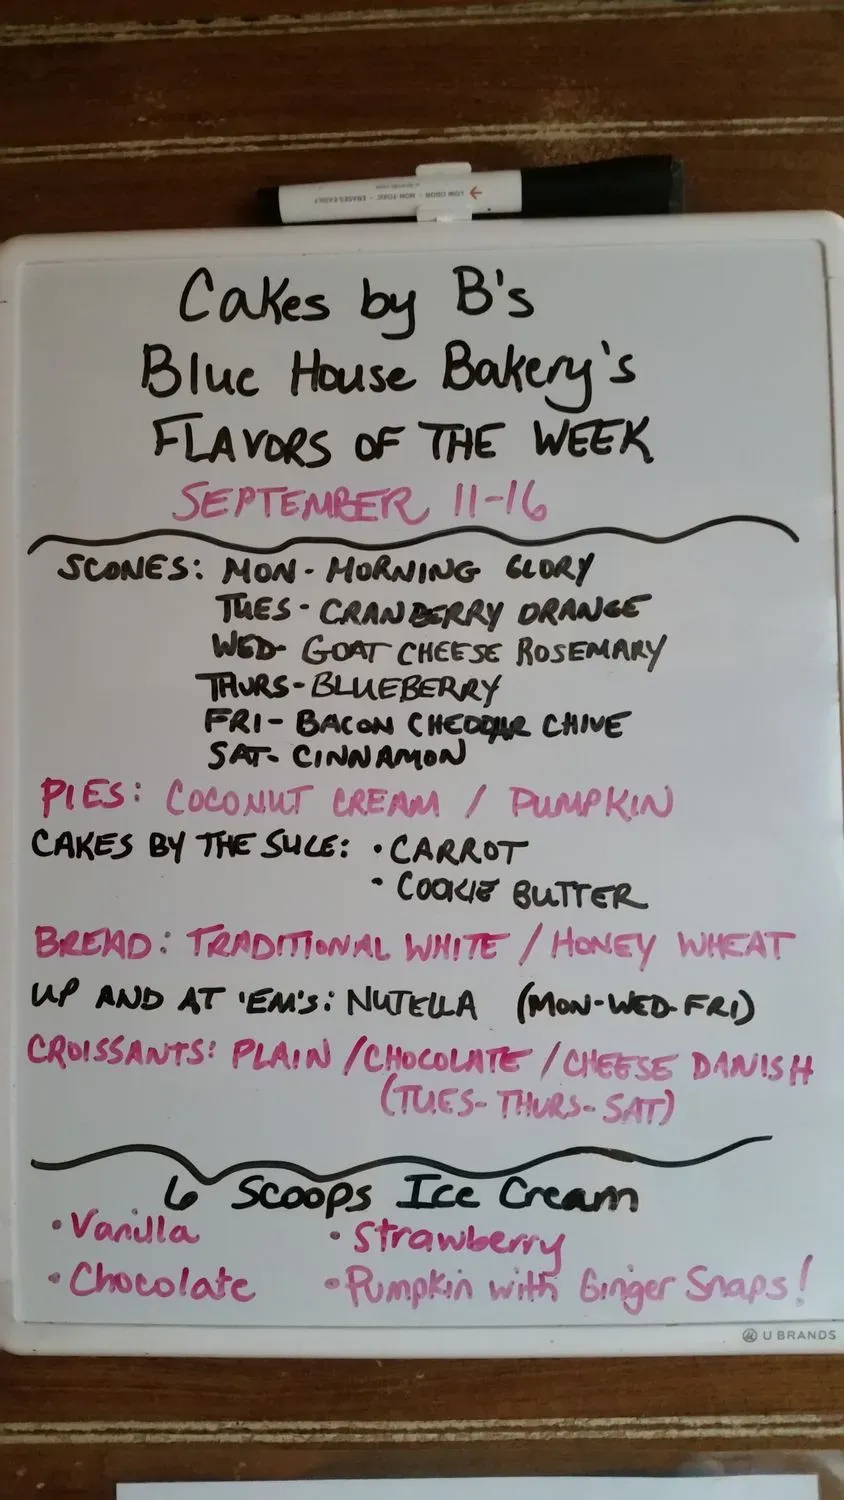 LOW ODOR • NON-TOXIC • ERASES EASILY
Cakes by B's
Blue House Bakery's
FLAVORS OF THE WEEK
SEPTEMBER 11-16
SCONES: MON - MORNING GLORY
TUES - CRANBERRY ORANGE
WED- GOAT CHEESE ROSEMARY
THURS- BLUEBERRY
FRI- BACON CHEDDAR CHIVE
SAT- CINNAMON
PIES: COCONUT CREAM / PUMPKIN
CAKES BY THE SLICE: • CARROT
• COOKIE BUTTER
BREAD: TRADITIONAL WHITE / HONEY WHEAT
UP AND AT 'EM'S: NUTELLA (MON-WED-FRI)
CROISSANTS: PLAIN / CHOCOLATE / CHEESE DANISH
(TUES- THURS- SAT)
6 Scoops Ice Cream
• Vanilla • Strawberry
• Chocolate • Pumpkin with Ginger Snaps!
U BRANDS